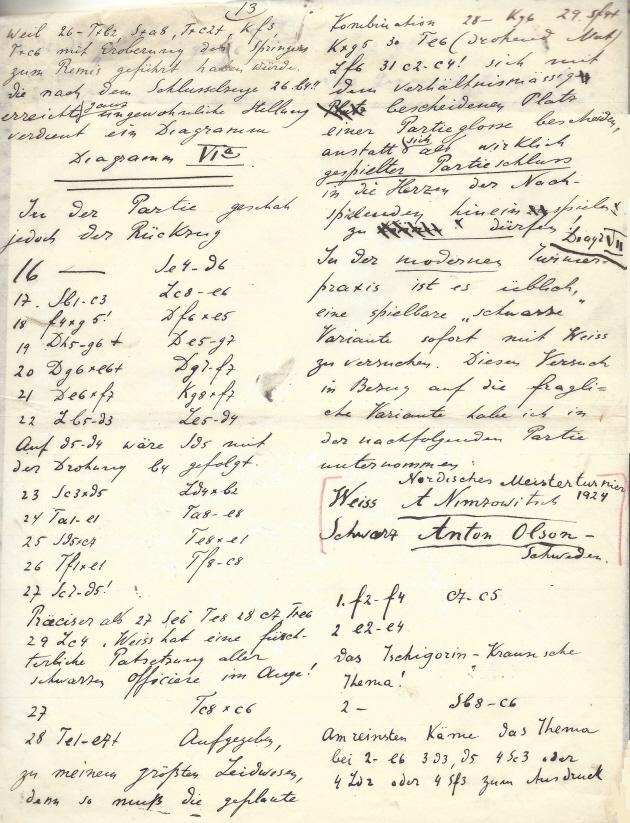 13
weil 26- T×b2, S×a8, T×c2+, Kf3
T×c6 mit Eroberung des Springers
zum Remis geführt haben würde.
die nach dem Schlusselzuge 26. b4!!
erreichte ganz ungewöhnliche Stellung
verdient ein Diagramm
Diagramm VIa
In der Partie geschah
jedoch der Rückzug
16 — Se4-d6
17. Sb1-c3 Lc8-e6
18 f4×g5! Df6×e5
19 Dh5-g6+ De5-g7
20 Dg6×e6+ Dg7-f7
21 De6×f7 Kg8×f7
22 Lb5-d3 Le5-d4
Auf d5-d4 wäre Sd5 mit
der Drohung b4 gefolgt.
23 Sc3×d5 Ld4×b2
24 Ta1-e1 Ta8-e8
25 Sd5×c7 Te8×e1
26 Tf1×e1 Tf8-c8
27 Sc7-d5!
Präciser als 27 Se6 Te8 28 c7 T×e6
29 Lc4. Weiss hat eine fürch-
terliche Patsetzung aller
schwarzen Officiere im Auge!
27 Tc8×c6
28 Te1-e7+ Aufgegeben,
zu meinem größten Leidwesen,
denn so muß die geplante
Kombination 28- Kg6 29. Sf4+
K×g5 30 Te6 (drohend Mat)
Lf6 31 c2-c4! sich mit
dem verhältnismässig
bescheidenen Platz
einer Partieglosse bescheiden,
anstatt sich als wirklich
gespielter Partieschluss
in die Herzen der Nach-
spielenden hinein spielen
zu dürfen! Diagr VII
In der modernen Turnier-
praxis ist es üblich,
eine spielbare „schwarze"
Variante sofort mit Weiss
zu versuchen. Diesen Versuch
in Bezug auf die fragli-
che Variante habe ich in
der nachfolgenden Partie
unternommen:
Nordisches Meisterturnier
1924
Weiss A Nimzowitsch
Schwarz Anton Olson -
Schweden.
1. f2-f4 c7-c5
2 e2-e4
das Tschigorin-Krausesche
Thema!
2 - Sb8-c6
Am reinsten käme das Thema
bei 2- e6 3 d3, d5 4 Sc3 oder
4 Ld2 oder 4 Sf3 zum Ausdruck